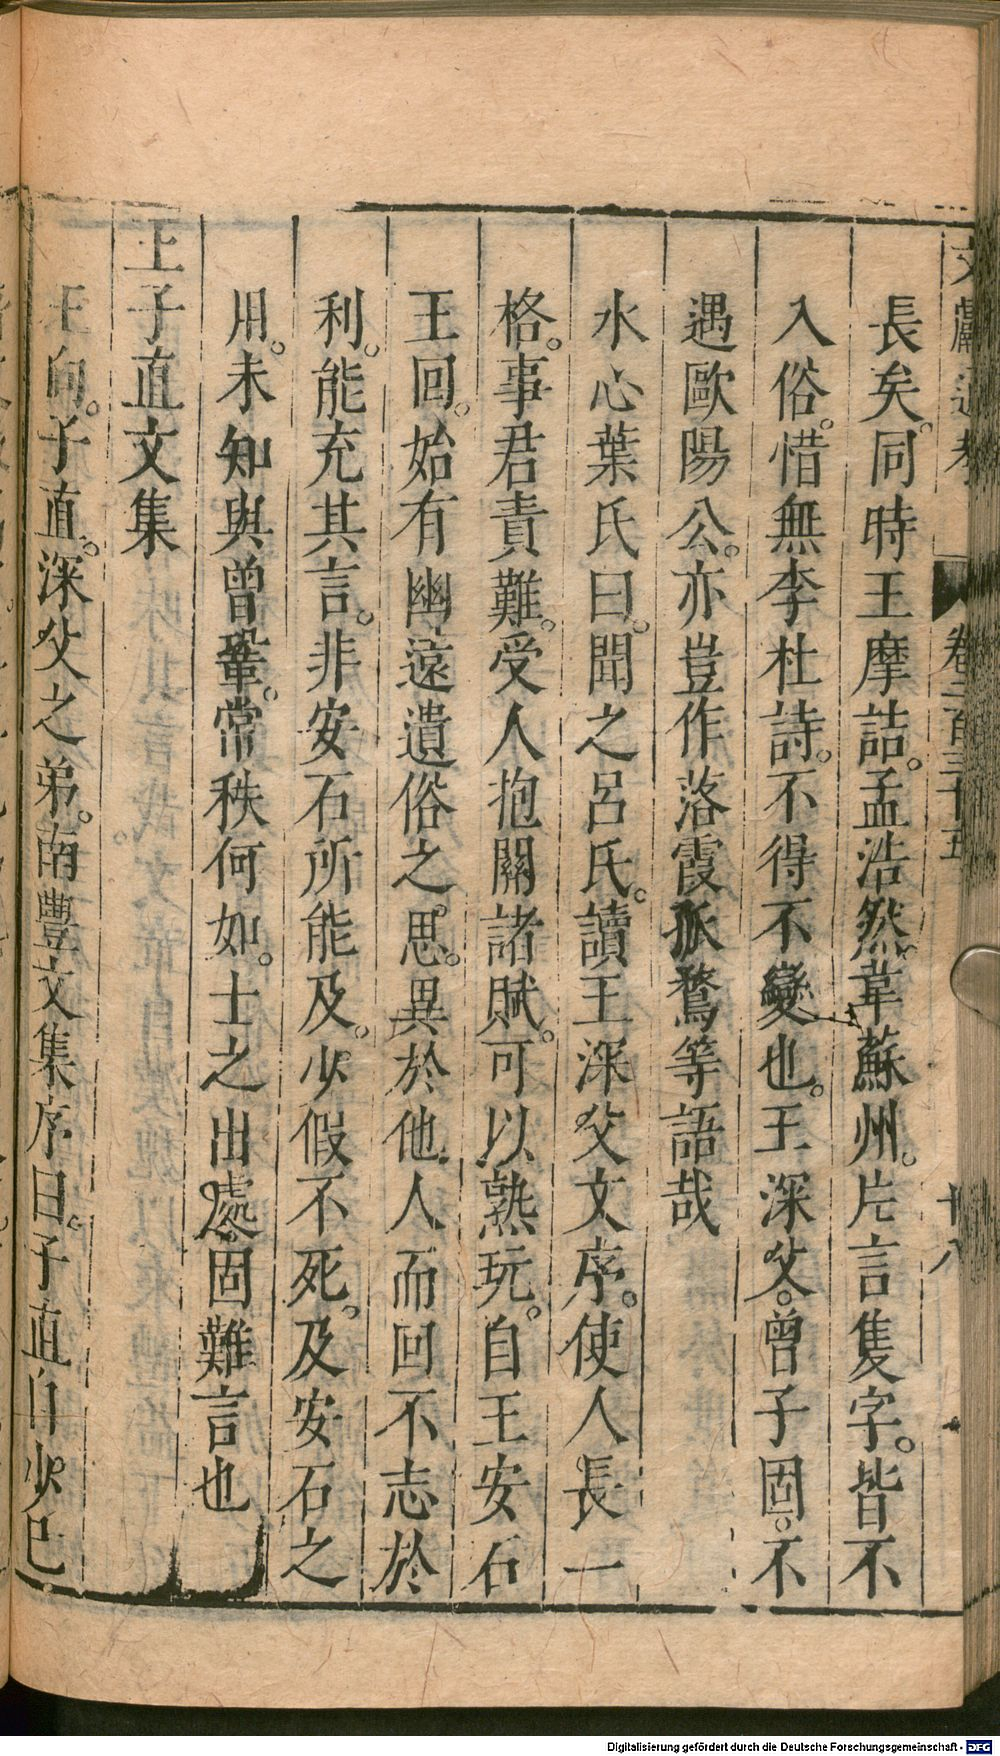 文獻通考 卷二百三十五 十八
長矣。同時王摩詰。孟浩然。韋蘇州。片言隻字。皆不
入俗。惜無李杜詩。不得不變也。王深父。曾子固。不
遇歐陽公。亦豈作落霞孤鶩等語哉
水心葉氏曰。聞之呂氏。讀王深父文序。使人長一
格。事君責難。受人抱關諸賦。可以熟玩。自王安石
王回。始有幽遠遺俗之思。異於他人。而回不志於
利。能充其言。非安石所能及。少假不死。及安石之
用。未知與曾鞏。常秩何如。士之出處固難言也
王子直文集
王向。子直。深父之弟。南豐文集序曰。子直自少已
Digitalisierung gefördert durch die Deutsche Forschungsgemeinschaft - DFG